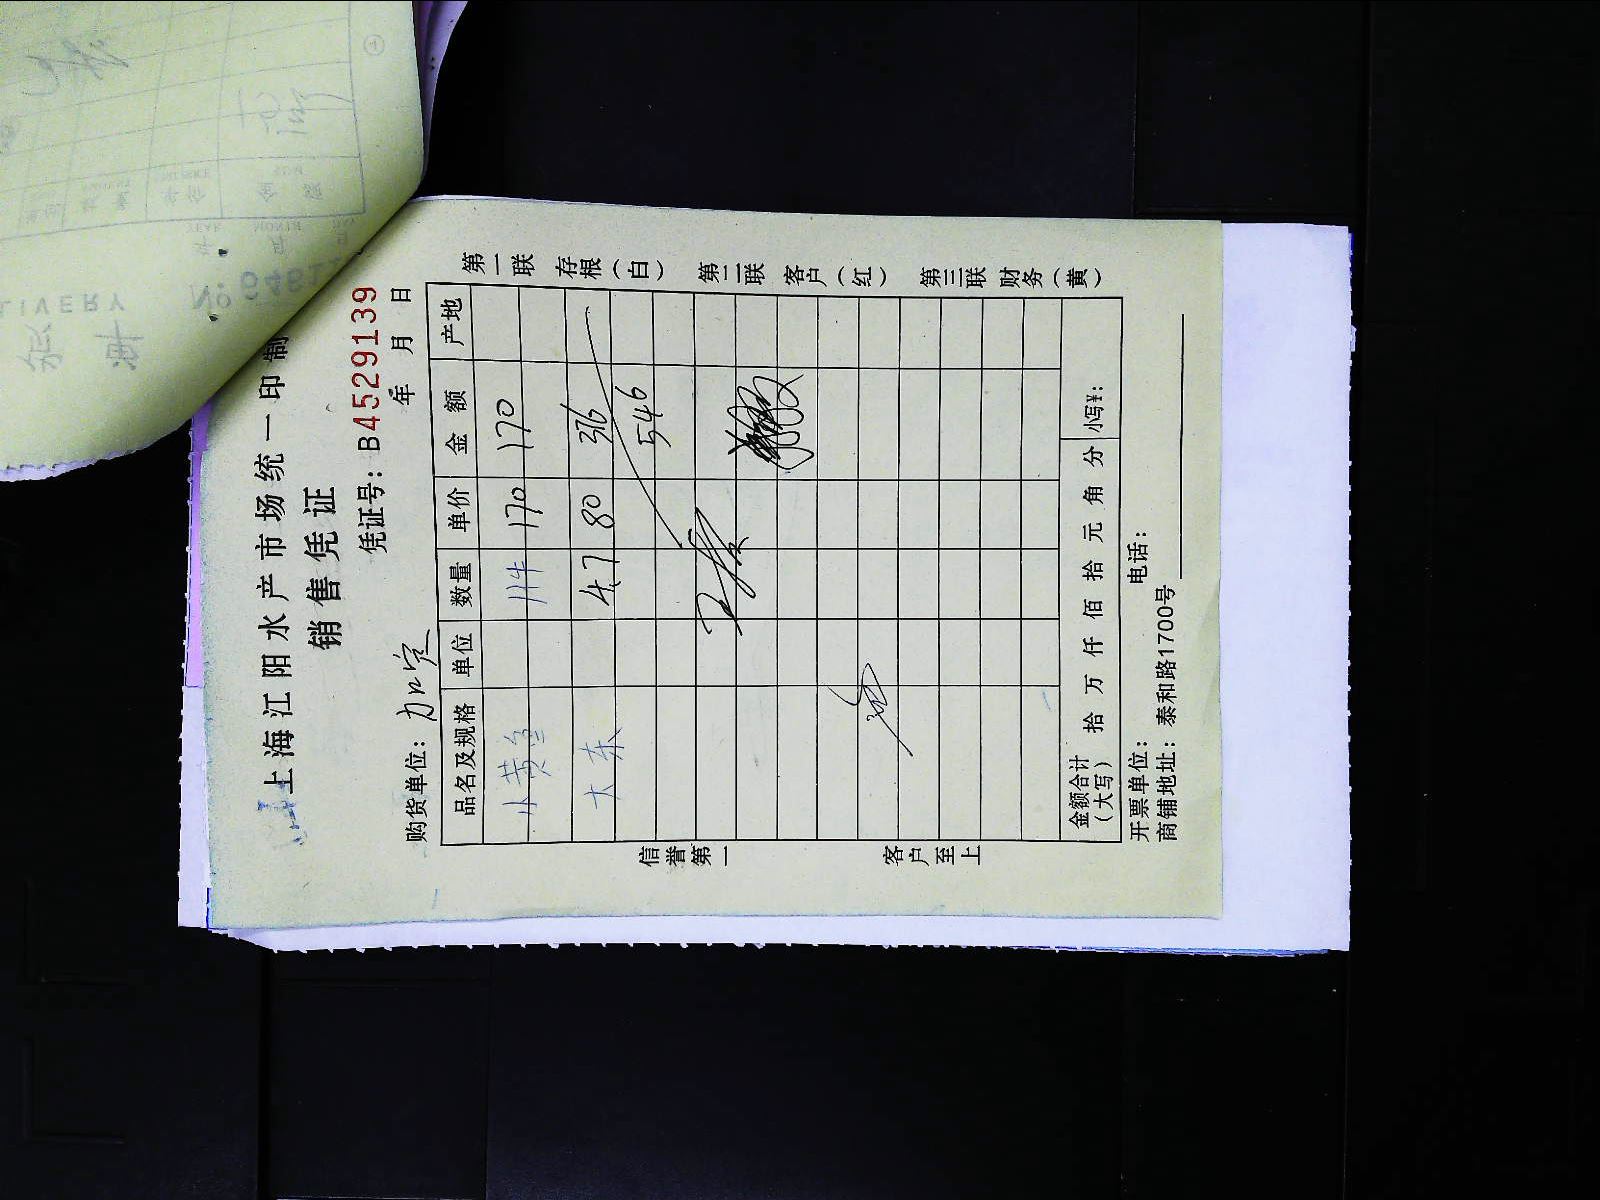 上海江阳水产市场统一印制
销售凭证
凭证号: B4529139
购货单位: 加宝 年 月 日
品名及规格 单位 数量 单价 金额 产地
小黄鱼 1件 170 170
大东 4.7 80 376
546
金额合计(大写) 拾 万 仟 佰 拾 元 角 分 小写¥:
开票单位: 电话:
商铺地址: 泰和路1700号
第一联 存根(白) 第二联 客户(红) 第三联 财务(黄)
信誉第一 客户至上
LIVERY